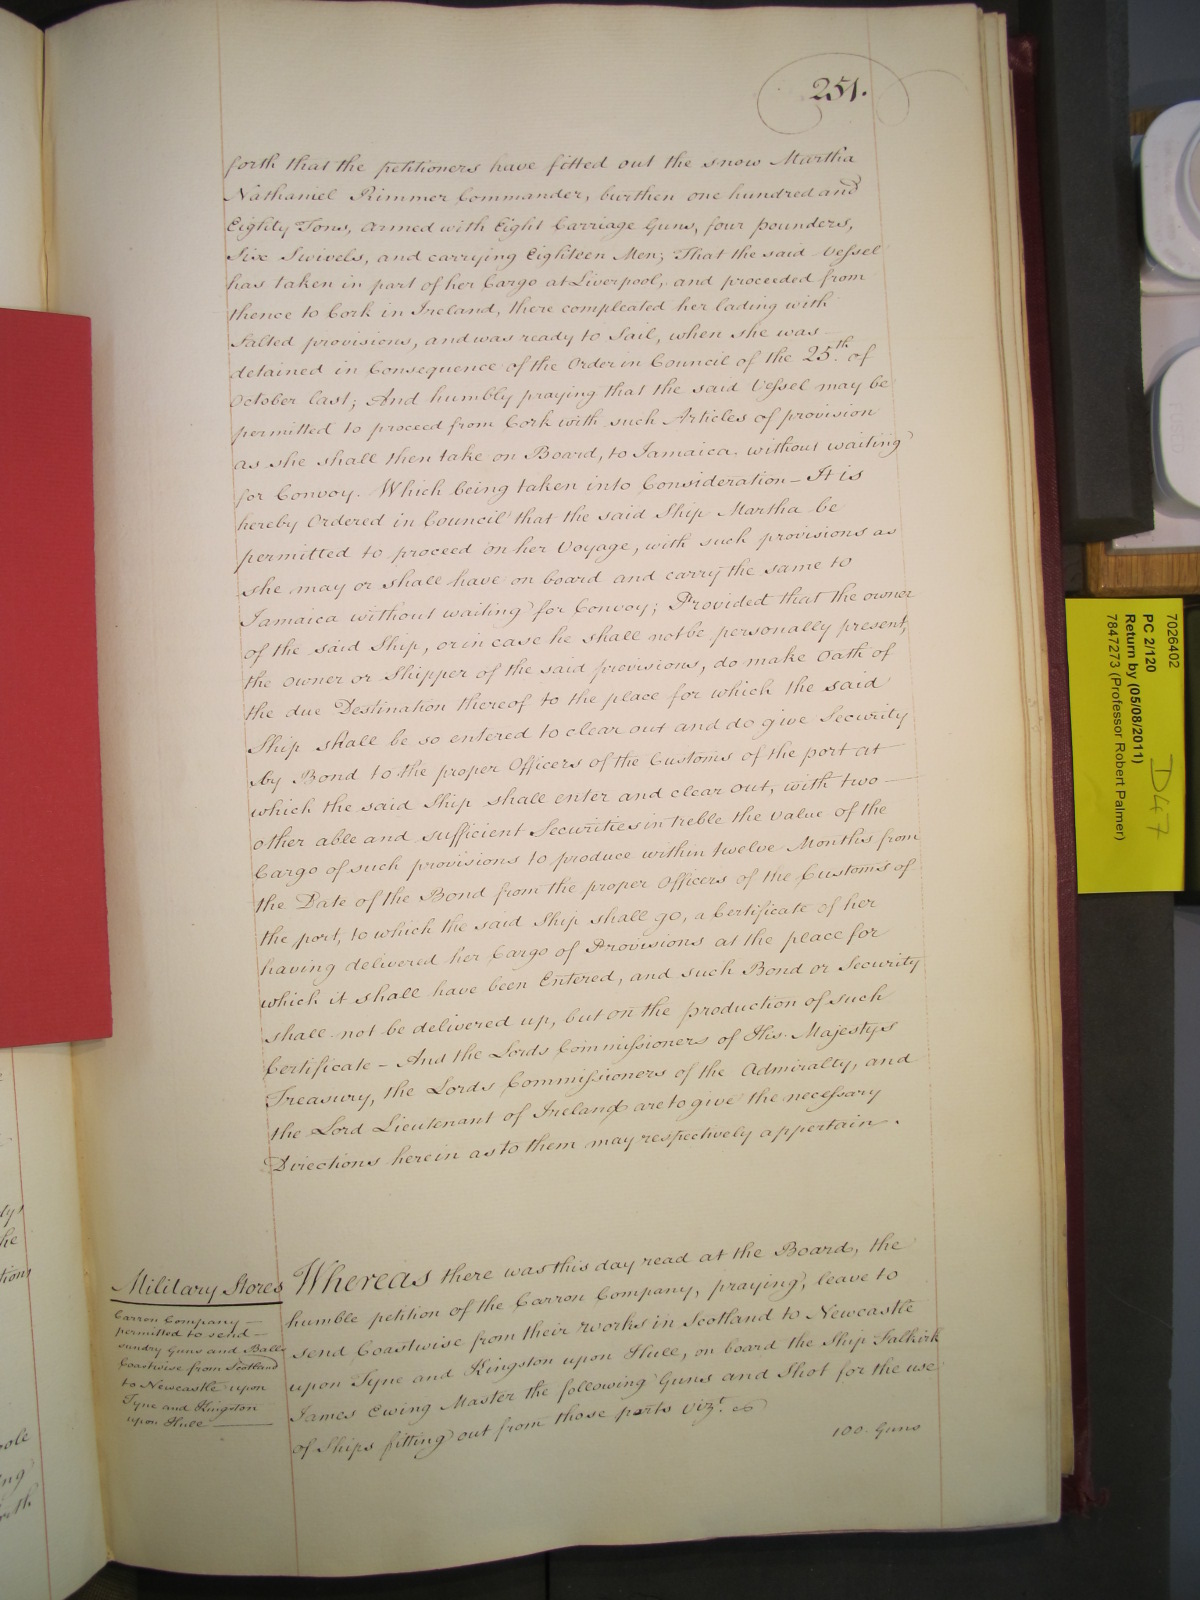 251.
forth that the petitioners have fitted out the snow Martha
Nathaniel Rimmer Commander, burthen one hundred and
Eighty Tons, armed with Eight Carriage Guns, four pounders,
Six Swivels, and carrying Eighteen Men; That the said Vessel
has taken in part of her Cargo at Liverpool, and proceeded from
thence to Cork in Ireland, there compleated her lading with
Salted provisions, and was ready to Sail, when she was
detained in Consequence of the Order in Council of the 25th. of
October last; And humbly praying that the said Vessel may be
permitted to proceed from Cork with such Articles of provision
as she shall then take on Board, to Jamaica. without waiting
for Convoy. Which being taken into Consideration - It is
hereby Ordered in Council that the said Ship Martha be
permitted to proceed on her Voyage, with such provisions as
she may or shall have on board and carry the same to
Jamaica without waiting for Convoy; Provided that the owner
of the said Ship, or in case he shall not be personally present,
the owner or Shipper of the said provisions, do make Oath of
the due Destination thereof to the place for which the said
Ship shall be so entered to clear out and do give Security
by Bond to the proper Officers of the Customs of the port at
which the said Ship shall enter and clear out, with two
other able and sufficient Securities in treble the value of the
Cargo of such provisions to produce within twelve Months from
the Date of the Bond from the proper Officers of the Customs of
the port, to which the said Ship shall go, a Certificate of her
having delivered her Cargo of Provisions at the place for
which it shall have been Entered, and such Bond or Security
shall not be delivered up, but on the production of such
Certificate - And the Lords Commissioners of His Majestys
Treasury, the Lords Commissioners of the Admiralty, and
the Lord Lieutenant of Ireland are to give the necessary
Directions herein as to them may respectively appertain.
Military Stores
Carron Company
permitted to send
sundry Guns and Balls
Coastwise from Scotland
to Newcastle upon
Tyne and Kingston
upon Hull
Whereas there was this day read at the Board, the
humble petition of the Carron Company, praying, leave to
send Coastwise from their works in Scotland to Newcastle
upon Tyne and Kingston upon Hull, on board the Ship Falkirk
James Ewing Master the following Guns and Shot for the use
of Ships fitting out from those ports vizt.
100. Guns
7026402
PC 2/120
Return by (05/08/2011)
7847273 (Professor Robert Palmer)
D47